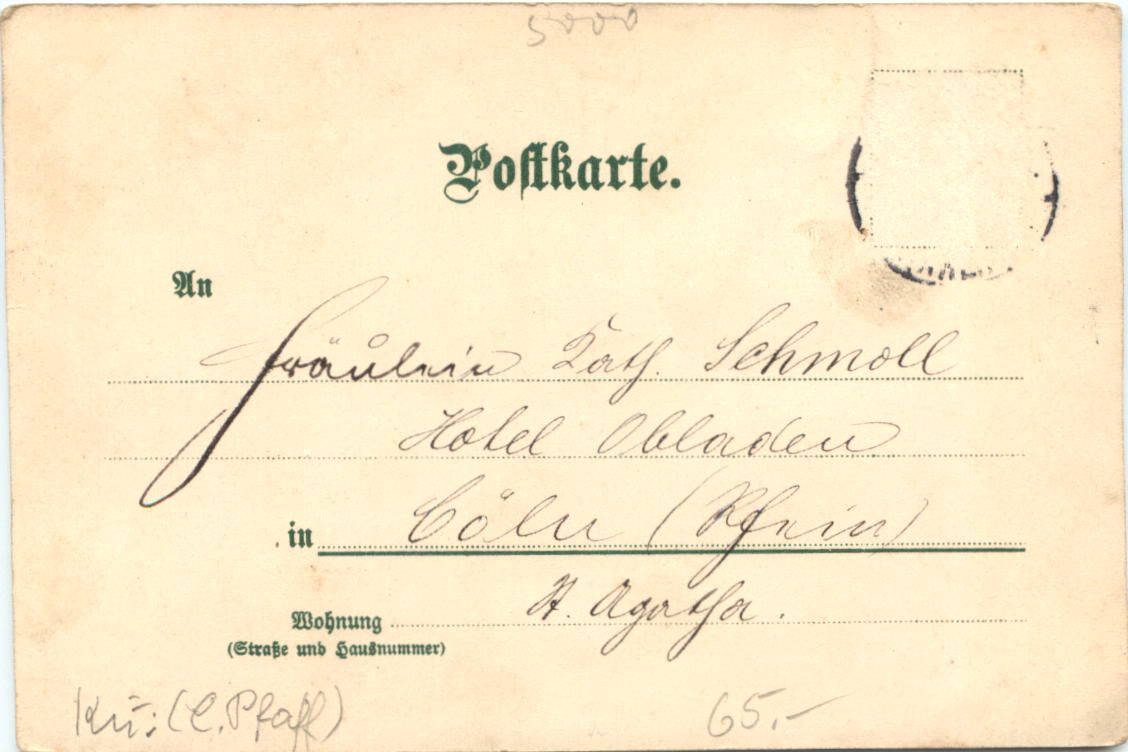 5000
Postkarte.
An
Fräulein Kath. Schmoll
Hotel Obladen
in Cöln (Rhein)
St. Agatha.
Wohnung
(Straße und Hausnummer)
Kü: (C. Pfaff) 65.-